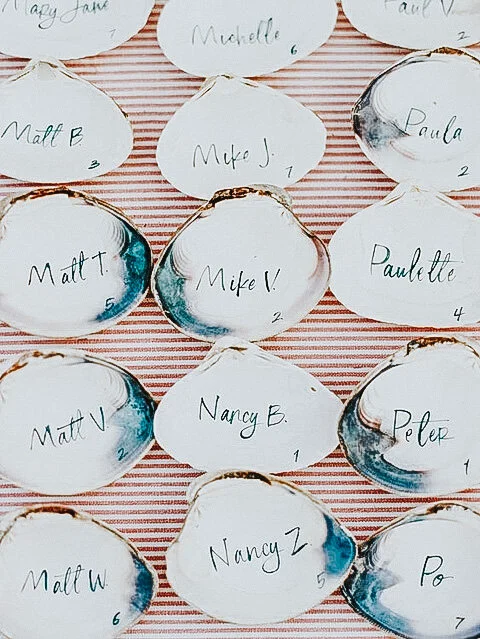 Mary Jane
7
Michelle
6
Paul V.
2
Matt B.
3
Mike J.
1
Paula
2
Matt T.
5
Mike V.
2
Paulette
4
Matt V.
2
Nancy B.
1
Peter
1
Matt W.
6
Nancy Z.
5
Po
7